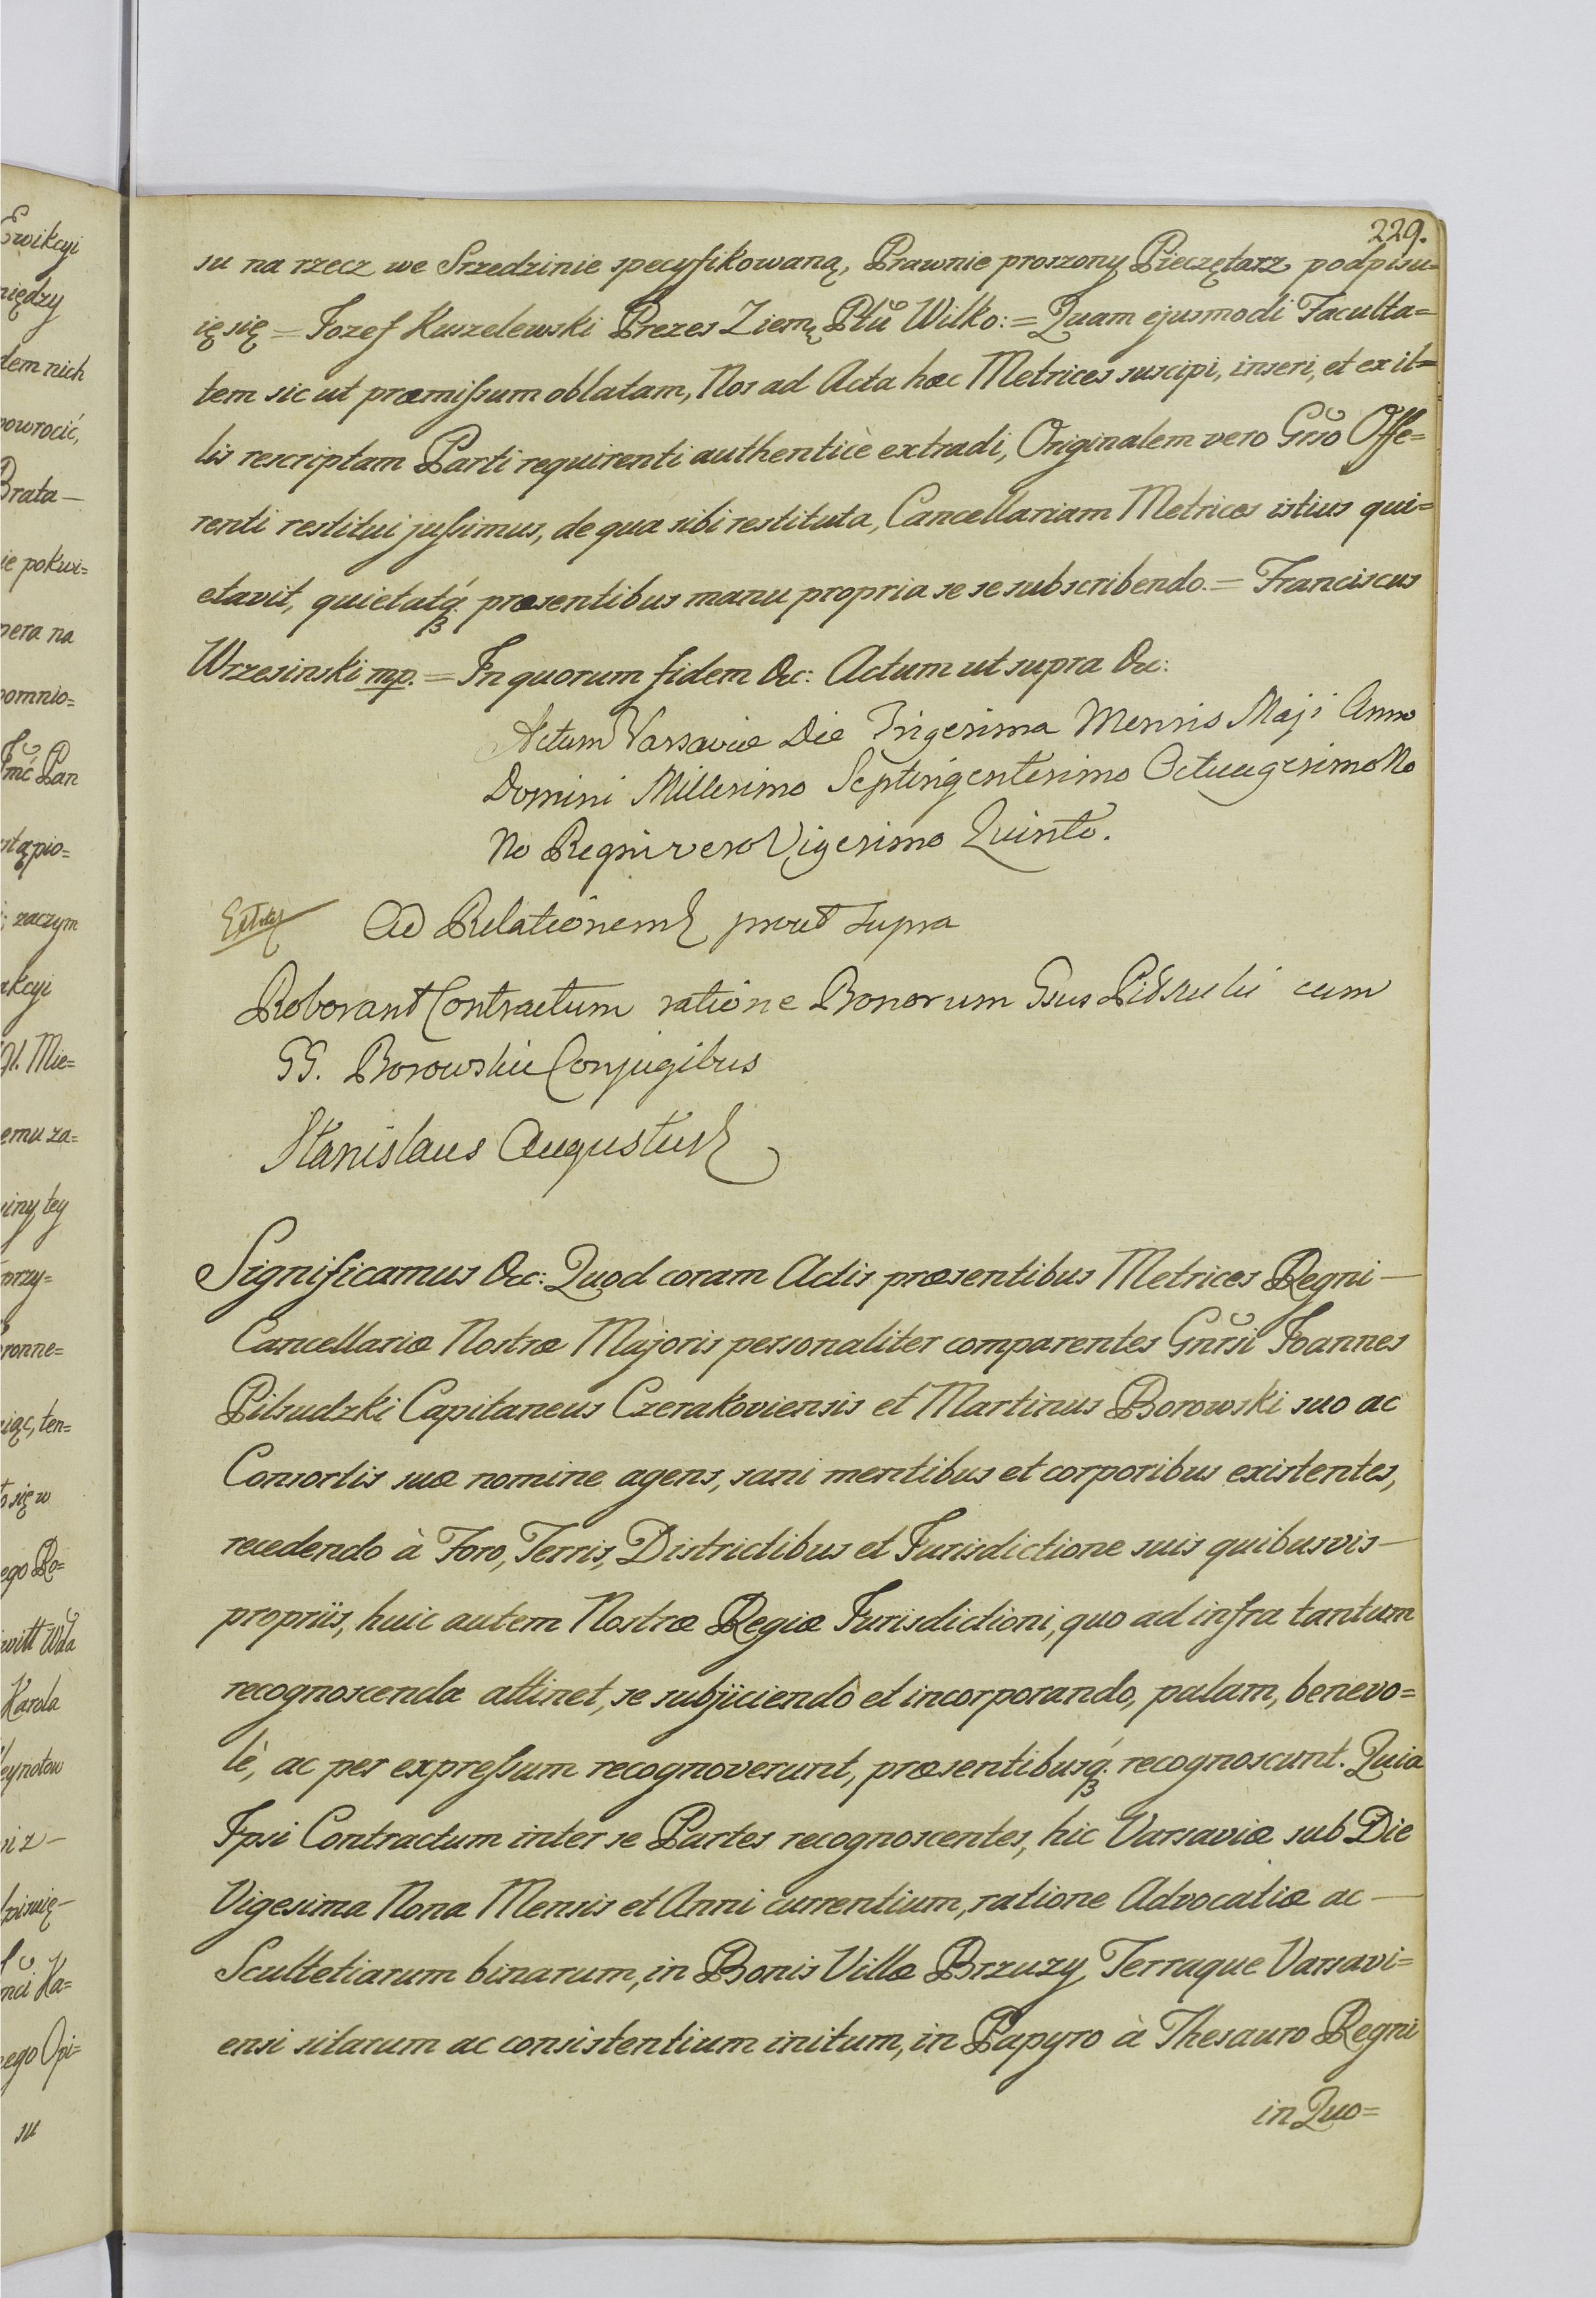 229.
su na rzecz we Srzedzinie specyfikowaną, Prawnie proszony Pieczętarz podpisu=
ię się = Jozef Kuszelewski Prezes Ziem: Ptũ Wilko: = Quam ejusmodi Faculta=
tem sic ut præmissum oblatam, Nos ad Acta hæc Metrices suscipi, inseri, et ex il=
lis rescriptam Parti requirenti authenticè extradi, Originalem vero Grso Offe=
renti restitui jussimus, de qua sibi restituta, Cancellariam Metrices istius qui=
etavit, quietatq́ præsentibus manu propria se se subscribendo. = Franciscus
Wrzesinski mp. = In quorum fidem &c: Actum ut supra &c:
Actum Varsaviæ Die Trigesima Mensis Maji Anno
Domini Millesimo Septingentesimo Octuagesimo No
No Regni vero Vigesimo Quinto.
Ad Relationem prout supra
Roborant Contractum ratione Bonorum Gsus Piłsucki cum
GG. Borowskie Conjugibus
Stanislaus Augustus
Significamus &c: Quod coram Actis præsentibus Metrices Regni —
Cancellariæ Nostræ Majoris personaliter comparentes Gnrsi Joannes
Pilsudzki Capitaneus Czerakoviensis et Martinus Borowski suo ac
Consortis suæ nomine agens, sani mentibus et corporibus existentes,
recedendo à Foro, Terris, Districtibus et Jurisdictione suis quibusvis —
propriis, huic autem Nostræ Regiæ Jurisdictioni, quo ad infra tantum
recognoscenda attinet, se subjiciendo et incorporando, palam, benevo=
lè, ac per expressum recognoverunt, præsentibusq́ recognoscunt. Quia
Ipsi Contractum inter se Partes recognoscentes, hic Varsaviæ sub Die
Vigesima Nona Mensis et Anni currentium, ratione Advocatiæ ac —
Scultetiarum binarum, in Bonis Villæ Brzuzy, Terraque Varsavi=
ensi sitarum ac consistentium initum, in Papyro à Thesauro Regni
in Quo=